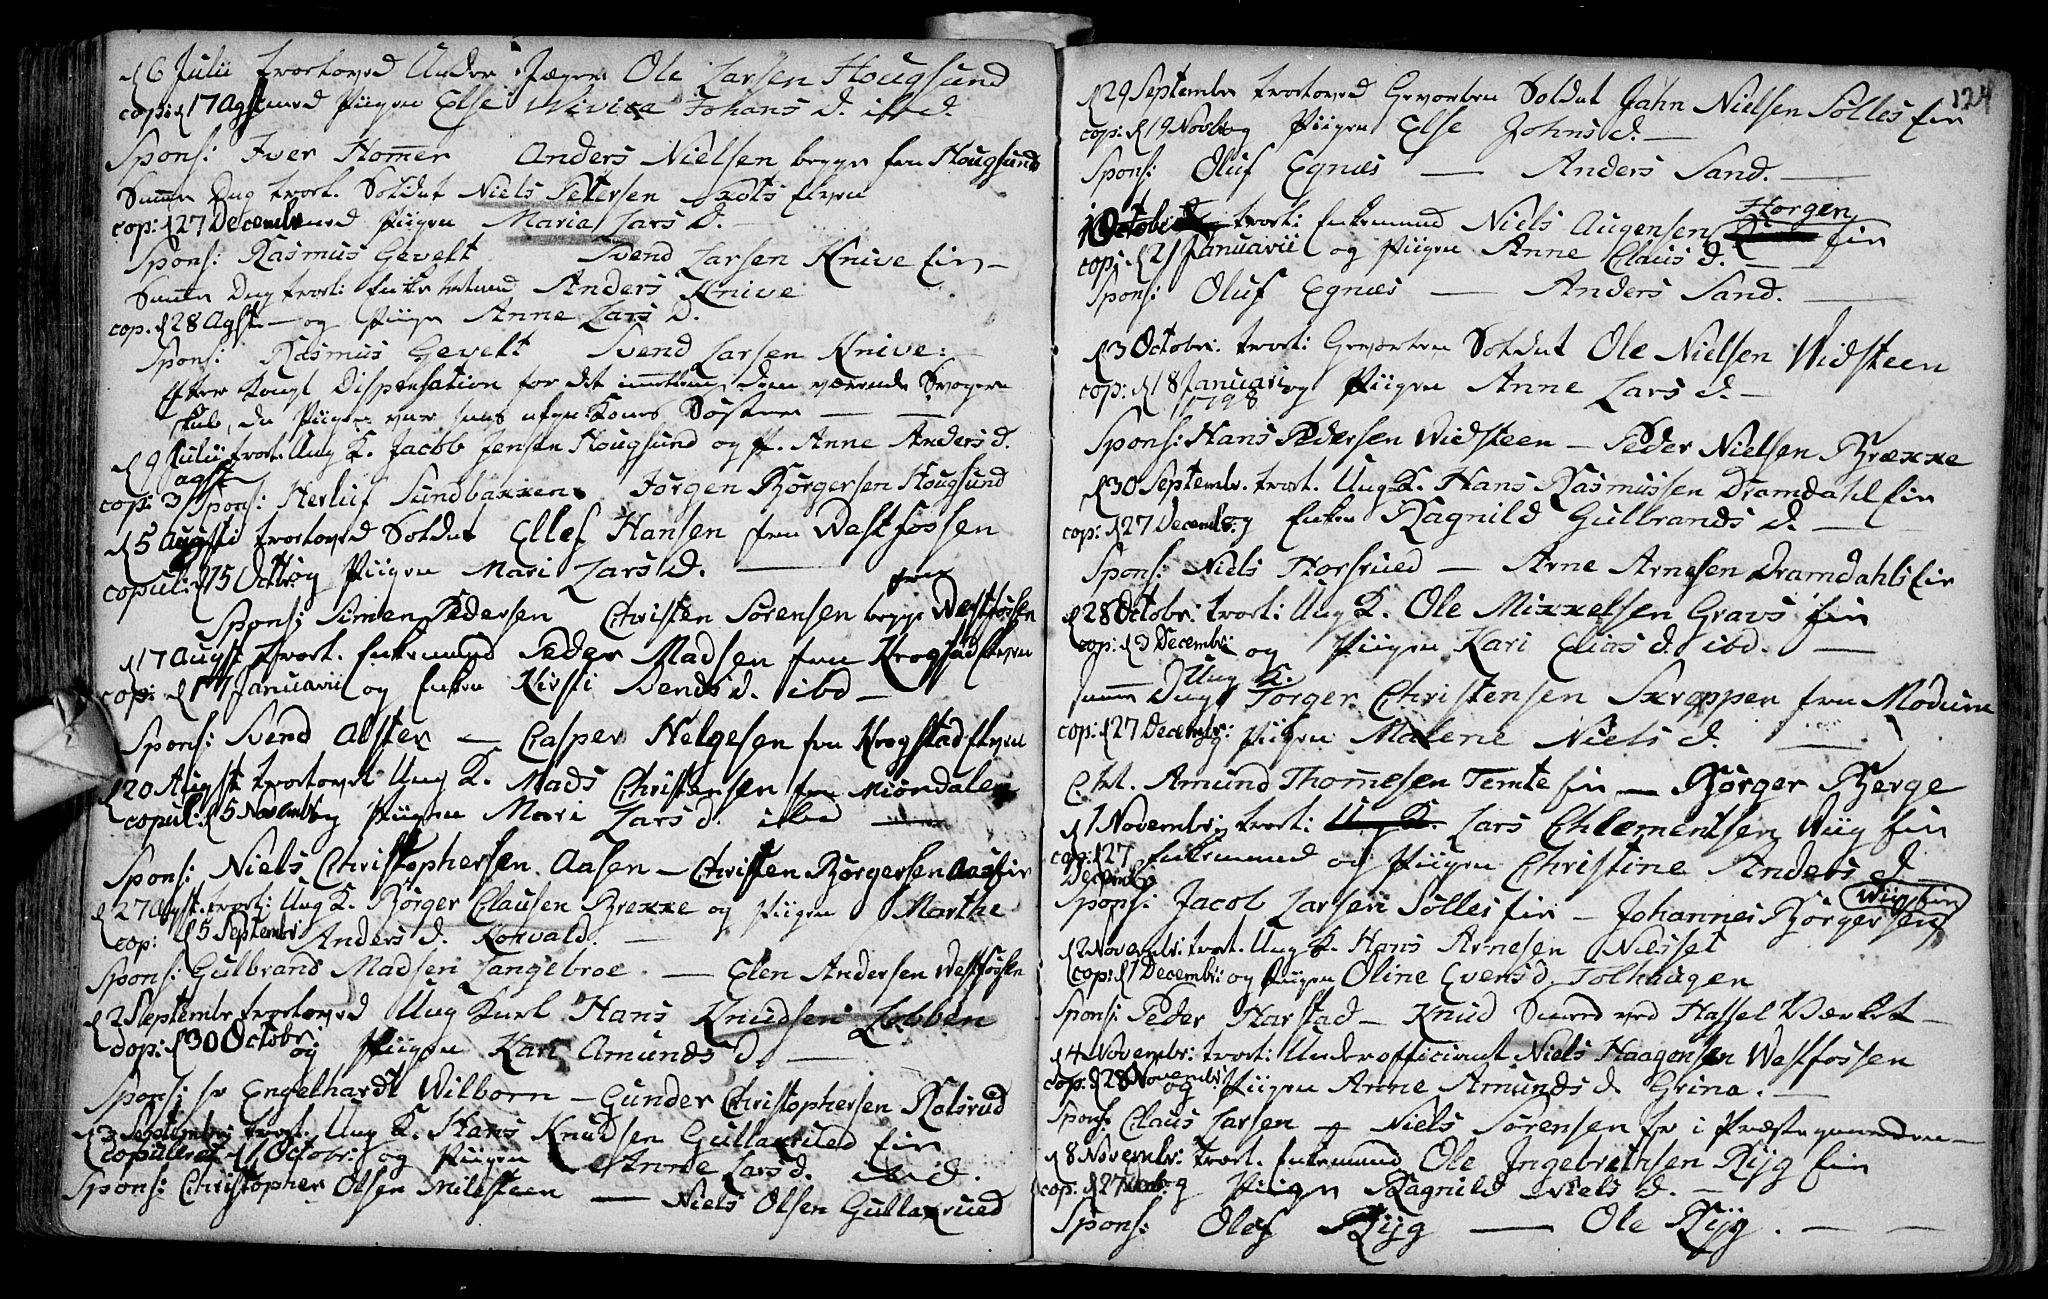 d 6 Julii troloved Under Jæger Ole Larsen Hougsund
cop: d 17 Agst med Piigen Else Wivica Johans d. ibd.
Spons: Iver Homer Anders Nielsen begge fra Hougsund
Samme Dag trol. Soldat Niels Petersen
cop: 27 Decembr med Piigen Maria Lars d.
Spons: Rasmus Gevelt Svend Larsen Knive Eier
Samme Dag trol: Enkemand Anders Knive
cop. d 28 Agst. og Piigen Anne Lars d.
Spons: Rasmus Gevelt Svend Larsen Knive.
Efter Kongl Dispensation for det imellem dem værende Svoger
skab, da Piigen var hans afgl: Kones Søster
d 9 Julii trol. Ung K. Jacob Jensen Hougsund og P. Anne Anders d.
cop: 3 agst Spons: Herluf Sundbakken Jørgen Børgersen Hougsund
d 5 Augsti trolovd Soldat Ellef Hansen fra Westfossen
copul: d 15 Octbr og Piigen Mari Lars d.
Spons: Simen Pedersen Christen Sørensen begge fra Westfossen
d 17 Augst trol. Enkemand Peder Madsen fra Krogstad
cop: d 17 Januarii og Enken Kirsti Svends d. ibd
Spons: Svend Alster Casper Helgesen fra Krogstad
d 20 Augst trolovet Ung K. Mads Christensen fra Miøndalen
copul: d 5 Novembr og Piigen Mari Lars d. ibd
Spons: Niels Christophersen Aasen - Christen Børgersen Aas Eir
d 27 Agst. trol: Ung K. Børger Clausen Brekke og Piigen Marthe
cop: d 5 Septembr: Anders d. Korvald.
Spons: Gulbrand Madsen Langebroe - Elen Andersen Westfossen
d 2 Septembr trolovd Ung Karl Hans Knudsen Lobben
cop: d 30 Octobr: og Piigen Kari Amunds d.
Spons: Sr Engelhardt Wilborn - Gunder Christophersen Kolsrud
d 3 Septembr: trol. Ung K. Hans Knudsen Gullaxrued Eir
copuleret d 1 Octobr: og Piigen Anne Lars d. ibd.
Spons: Christopher Olsen Milesteen - Niels Olsen Gullaxrued
124
d 29 Septembr trolovd Gevorben Soldat Jahn Nielsen Solles Eir
cop: d 19 Novbr og Piigen Else Johns d.
Spons: Oluf Egnæs - Anders Sand.
1 Octobr trol: Enkemand Niels Augensen Horgen Eir
cop: d 21 Januarii og Piigen Anne Claus d.
Spons: Oluf Egnæs - Anders Sand.
d 3 Octobr. trol: Gevorben Soldat Ole Nielsen Widsteen
cop: d 18 Januari 1798 og Piigen Anne Lars d.
Spons: Hans Pedersen Widsteen - Peder Nielsen Brække
d 30 Septembr. trol. Ung K. Hans Rasmussen Dramdahl Eir
cop: 27 Decembr. og Enken Ragnild Gulbrands d.
Spons: Niels Horsrued - Arne Arnesen Dramdahls Eir
d 28 Octobr: trol: Ung K. Ole Mikkelsen Gravs Eir
cop: d 3 Decembr: og Piigen Kari Elias d. ibd.
samme Dag Ung K. Torger Christensen Skropper fra Modum
cop: d 27 Decembr: og Piigen Malene Niels d.
Amund Thommesen Temte Eir - Børger Berge
d 1 Novembr: trol: Lars Chlementsen Wiig Eir
cop: 27 Decembr Enkemand og Piigen Christine Anders d
Spons: Jacob Larsen Solles Eir - Johannes Børgersen Wiigs Eir
d 2 Novembr: trol. Ung K. Hans Arnesen Næsset
cop: d 7 Decembr: og Piigen Oline Evens d. Tolhaugen
Spons: Peder Harstad - Knud Smed ved Hassel Værket
d 4 Novembr: trol: Underofficiant Niels Haagensen Westfossen
cop: d 28 Novembr: og Piigen Anne Amunds d. Grina.
Spons: Claus Larsen - Niels Sørensen i Præstegaarden
d 8 Novembr: trol. Enkemand Ole Ingebrethsen Ryg Eir
cop: d 27 og Piigen Ragnild Niels d.
Spons: Olef Ryg - Ole Ryg.